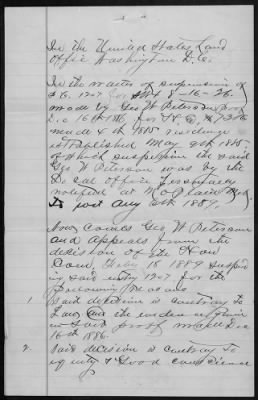 In the United States Land
Office Washington D.C.
In the matter of suspension of
made by Geo W Peterson
Dec 16th 1886 for H.E.
made 4th 1885 residence
established May 9th 1885
of which suspension the said
Geo W Peterson was by the
Local Office personally
notified at
to wit Aug 6th 1889.
Now Comes Geo W Peterson
and appeals from the
decision of the Hon
Com. 15 1889
said entry 1207 for the
following reasons
1. Said decision is contrary to
Law and the evidence given
in said proof made Dec
16th 1886.
2. Said decision is contrary to
equity & Good conscience